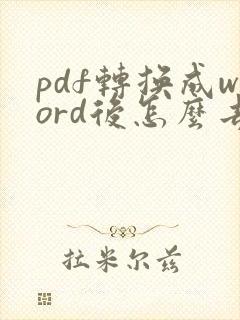 pdf轉換成w
ord後怎麼去
拉米尔兹